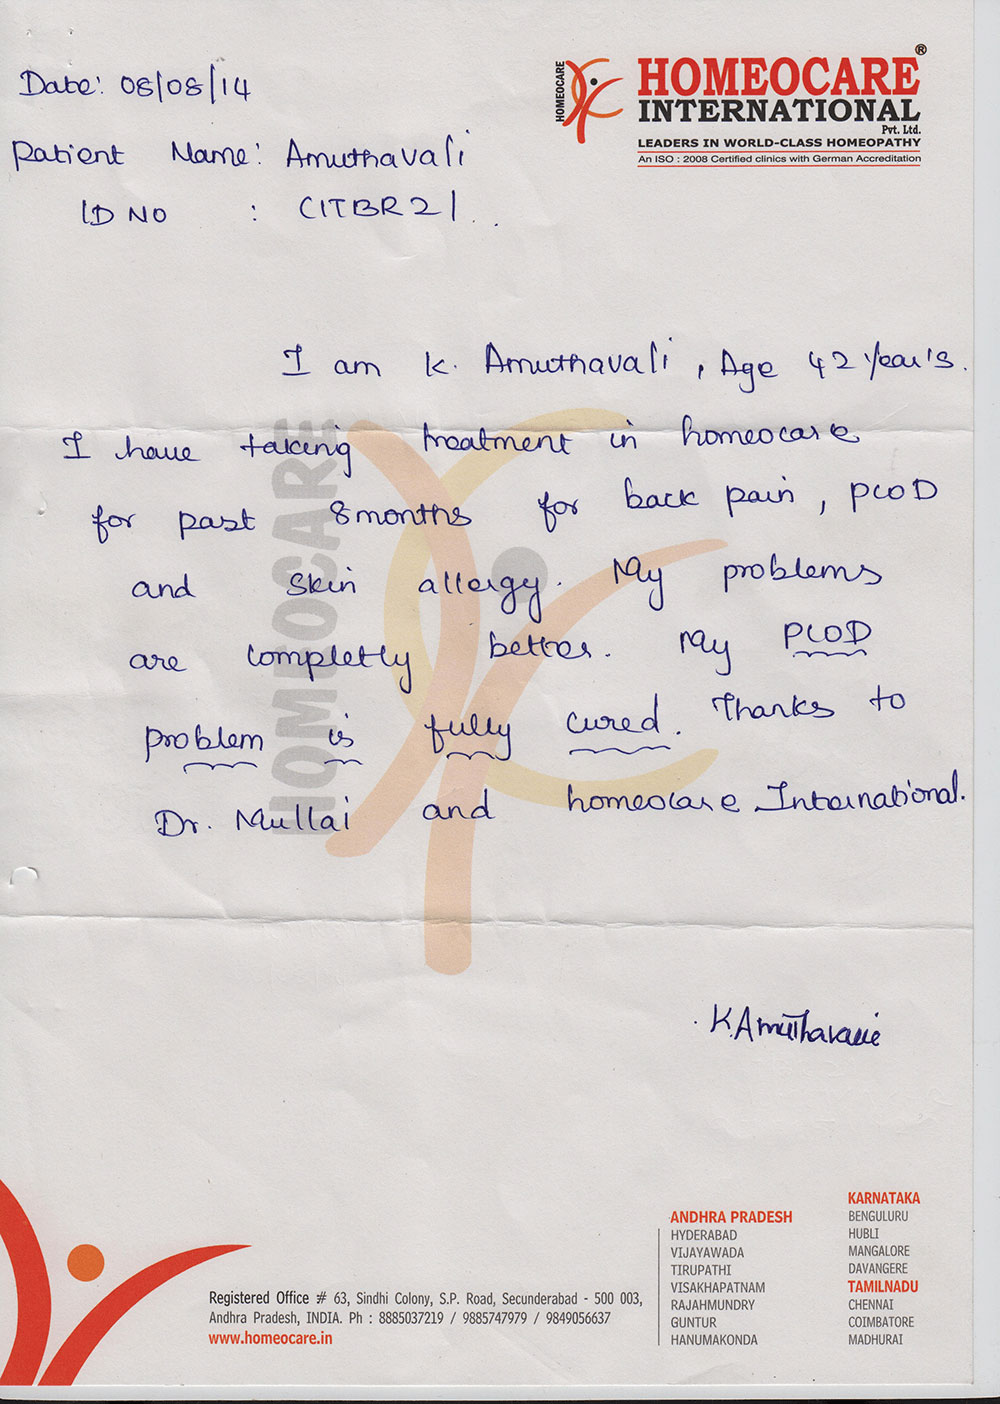 Date: 08/08/14
HOMEOCARE
HOMEOCARE ®
INTERNATIONAL
Pvt. Ltd.
LEADERS IN WORLD-CLASS HOMEOPATHY
An ISO : 2008 Certified clinics with German Accreditation
Patient Name: Amuthavali
ID NO : CITBR21
I am K. Amuthavali, Age 42 Year's.
I have taking treatment in homeocare
for past 8 months for back pain, PCOD
and skin allergy. My problems
are completly better. My PCOD
problem is fully cured. Thanks to
Dr. Mullai and homeocare International.
HOMEOCARE
K. Amuthavalie
ANDHRA PRADESH
HYDERABAD
VIJAYAWADA
TIRUPATHI
VISAKHAPATNAM
RAJAHMUNDRY
GUNTUR
HANUMAKONDA
KARNATAKA
BENGULURU
HUBLI
MANGALORE
DAVANGERE
TAMILNADU
CHENNAI
COIMBATORE
MADHURAI
Registered Office # 63, Sindhi Colony, S.P. Road, Secunderabad - 500 003,
Andhra Pradesh, INDIA. Ph : 8885037219 / 9885747979 / 9849056637
www.homeocare.in